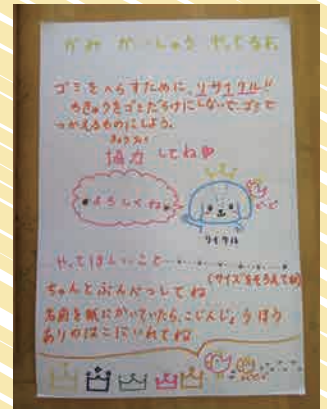 かみ かいしゅう やってるよ
ゴミをへらすために、リサイクル!!
ちきゅうをゴミだらけにしないで、ゴミで
つかえるものにしよう。
きょうりょく
協力してね♡
よろしくね
サイクル
やってほしいこと
(サイズをそろえてね)
ちゃんとぶんべつしてね
名前を紙にかいていたら、こじんじょうほう
ありのはこにいれてね